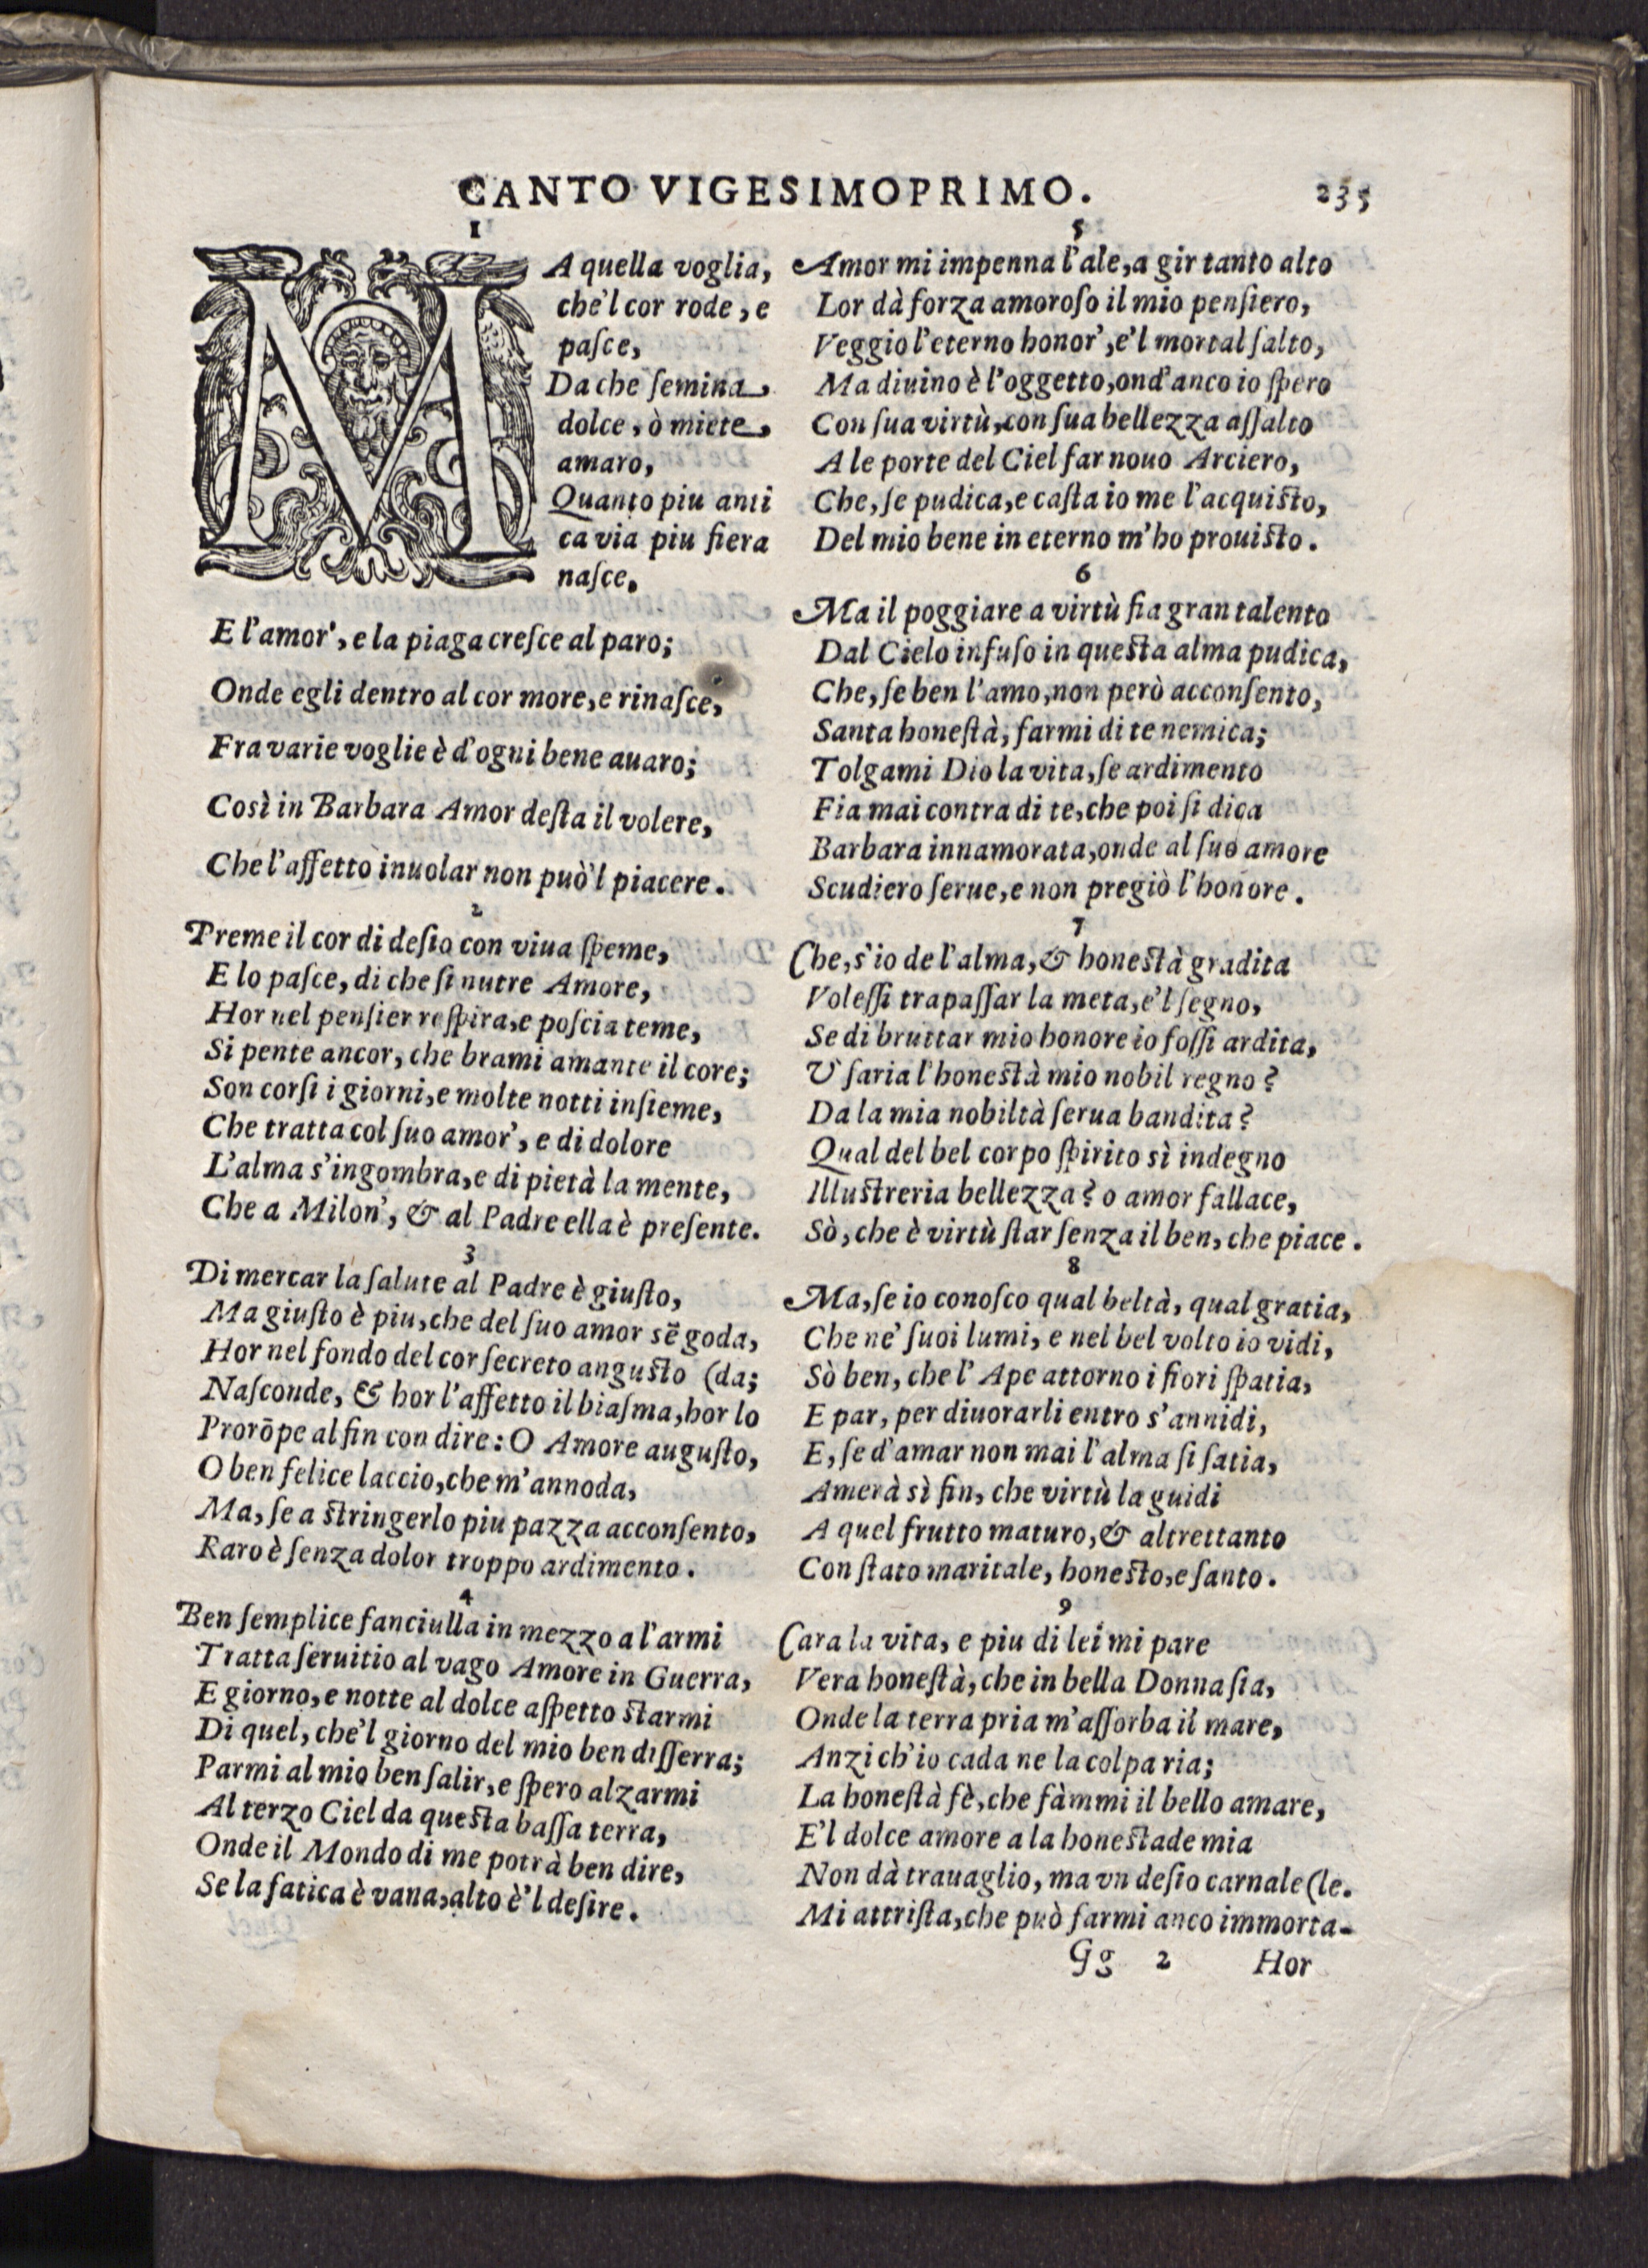 CANTO VIGESIMOPRIMO. 235
1
MA quella voglia,
che'l cor rode, e
paſce,
Da che ſemina
dolce, ò miete,
amaro,
Quanto piu anti
ca via piu fiera
naſce,
E l'amor', e la piaga creſce al paro;
Onde egli dentro al cor more, e rinaſce,
Fra varie voglie è d'ogni bene auaro;
Così in Barbara Amor deſta il volere,
Che l'affetto inuolar non può'l piacere.
2
Preme il cor di deſio con viua ſpeme,
E lo paſce, di che ſi nutre Amore,
Hor nel penſier reſpira, e poſcia teme,
Si pente ancor, che brami amante il core;
Son corſi i giorni, e molte notti inſieme,
Che tratta col ſuo amor', e di dolore
L'alma s'ingombra, e di pietà la mente,
Che a Milon', & al Padre ella è preſente.
3
Di mercar la ſalute al Padre è giuſto,
Ma giuſto è piu, che del ſuo amor sē goda,
Hor nel fondo del cor ſecreto anguſto (da;
Naſconde, & hor l'affetto il biaſma, hor lo
Prorōpe al fin con dire: O Amore auguſto,
O ben felice laccio, che m'annoda,
Ma, ſe a ſtringerlo piu pazza acconſento,
Raro è ſenza dolor troppo ardimento.
4
Ben ſemplice fanciulla in mezzo a l'armi
Tratta ſeruitio al vago Amore in Guerra,
E giorno, e notte al dolce aſpetto ſtarmi
Di quel, che'l giorno del mio ben diſſerra;
Parmi al mio ben ſalir, e ſpero alzarmi
Al terzo Ciel da queſta baſſa terra,
Onde il Mondo di me potrà ben dire,
Se la fatica è vana, alto è'l deſire.
5
Amor mi impenna l'ale, a gir tanto alto
Lor dà forza amoroſo il mio penſiero,
Veggio l'eterno honor', e'l mortal ſalto,
Ma diuino è l'oggetto, ond'anco io ſpero
Con ſua virtù, con ſua bellezza aſſalto
A le porte del Ciel far nouo Arciero,
Che, ſe pudica, e caſta io me l'acquiſto,
Del mio bene in eterno m'ho prouiſto.
6
Ma il poggiare a virtù fia gran talento
Dal Cielo infuſo in queſta alma pudica,
Che, ſe ben l'amo, non però acconſento,
Santa honeſtà, farmi di te nemica;
Tolgami Dio la vita, ſe ardimento
Fia mai contra di te, che poi ſi dica
Barbara innamorata, onde al ſuo amore
Scudiero ſerue, e non pregiò l'honore.
7
Che, s'io de l'alma, & honeſtà gradita
Voleſſi trapaſſar la meta, e'l ſegno,
Se di bruttar mio honore io foſſi ardita,
V' ſaria l'honeſtà mio nobil regno?
Da la mia nobiltà ſerua bandita?
Qual del bel corpo ſpirito sì indegno
Illuſtreria bellezza? o amor fallace,
Sò, che è virtù ſtar ſenza il ben, che piace.
8
Ma, ſe io conoſco qual beltà, qual gratia,
Che ne' ſuoi lumi, e nel bel volto io vidi,
Sò ben, che l'Ape attorno i fiori ſpatia,
E par, per diuorarli entro s'annidi,
E, ſe d'amar non mai l'alma ſi ſatia,
Amerà sì fin, che virtù la guidi
A quel frutto maturo, & altrettanto
Con ſtato maritale, honeſto, e ſanto.
9
Cara la vita, e piu di lei mi pare
Vera honeſtà, che in bella Donna ſia,
Onde la terra pria m'aſſorba il mare,
Anzi ch'io cada ne la colpa ria;
La honeſtà fè, che fàmmi il bello amare,
E'l dolce amore a la honeſtade mia
Non dà trauaglio, ma vn deſio carnale (le.
Mi attriſta, che può farmi anco immorta-
Gg 2 Hor